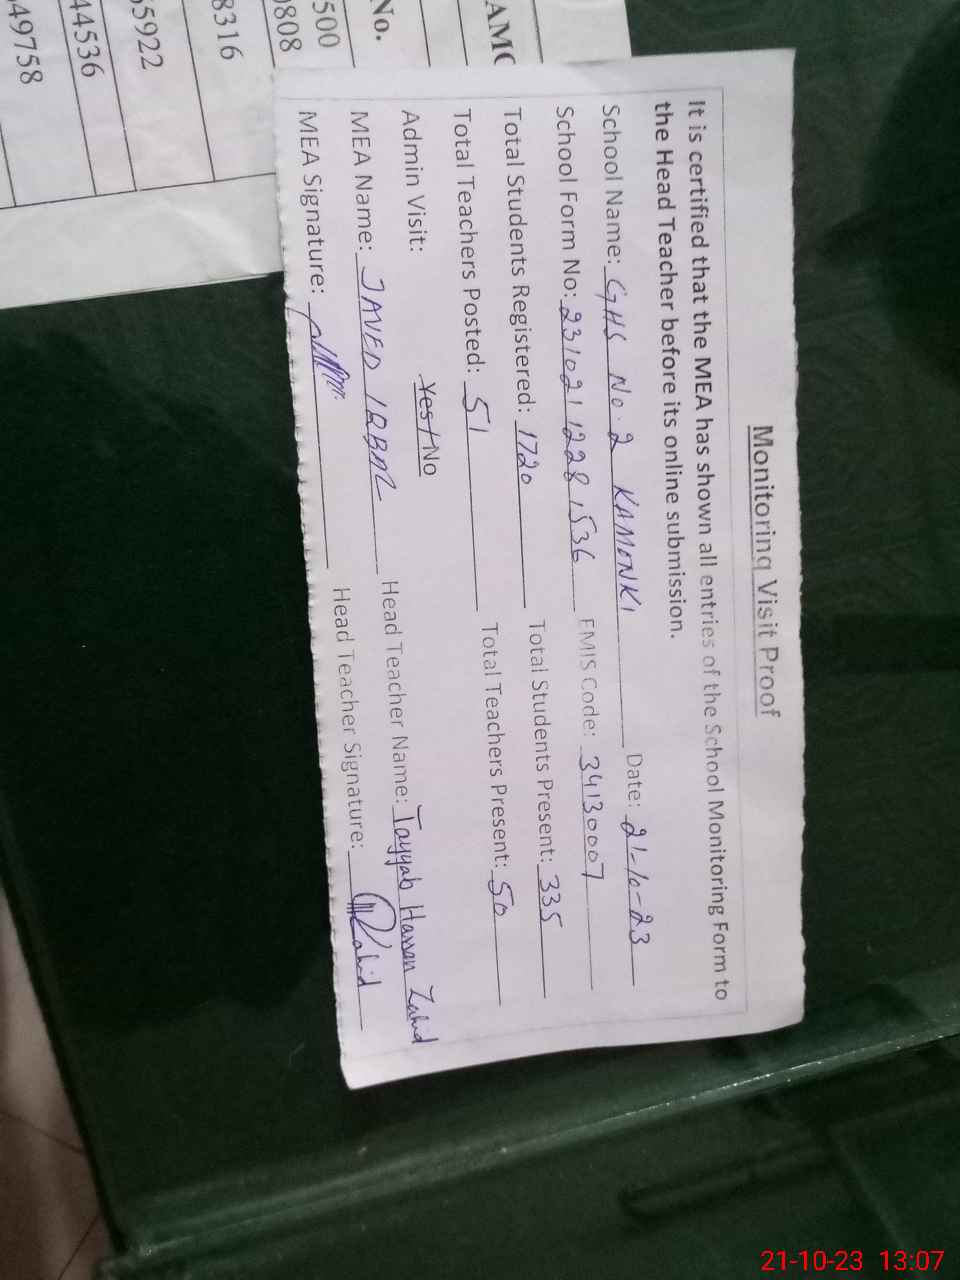 Monitoring Visit Proof
It is certified that the MEA has shown all entries of the School Monitoring Form to
the Head Teacher before its online submission.
School Name: GHS No. 2 KAMONKI Date: 21-10-23
School Form No: 231021 1228 1536 EMIS Code: 34130007
Total Students Registered: 1720 Total Students Present: 335
Total Teachers Posted: 51 Total Teachers Present: 50
Admin Visit: Yes/No
MEA Name: JAVED IQBAL Head Teacher Name: Tayyab Hassan Zahid
MEA Signature: Head Teacher Signature: Zahid
AMO
No.
500
0808
8316
55922
44536
49758
21-10-23 13:07